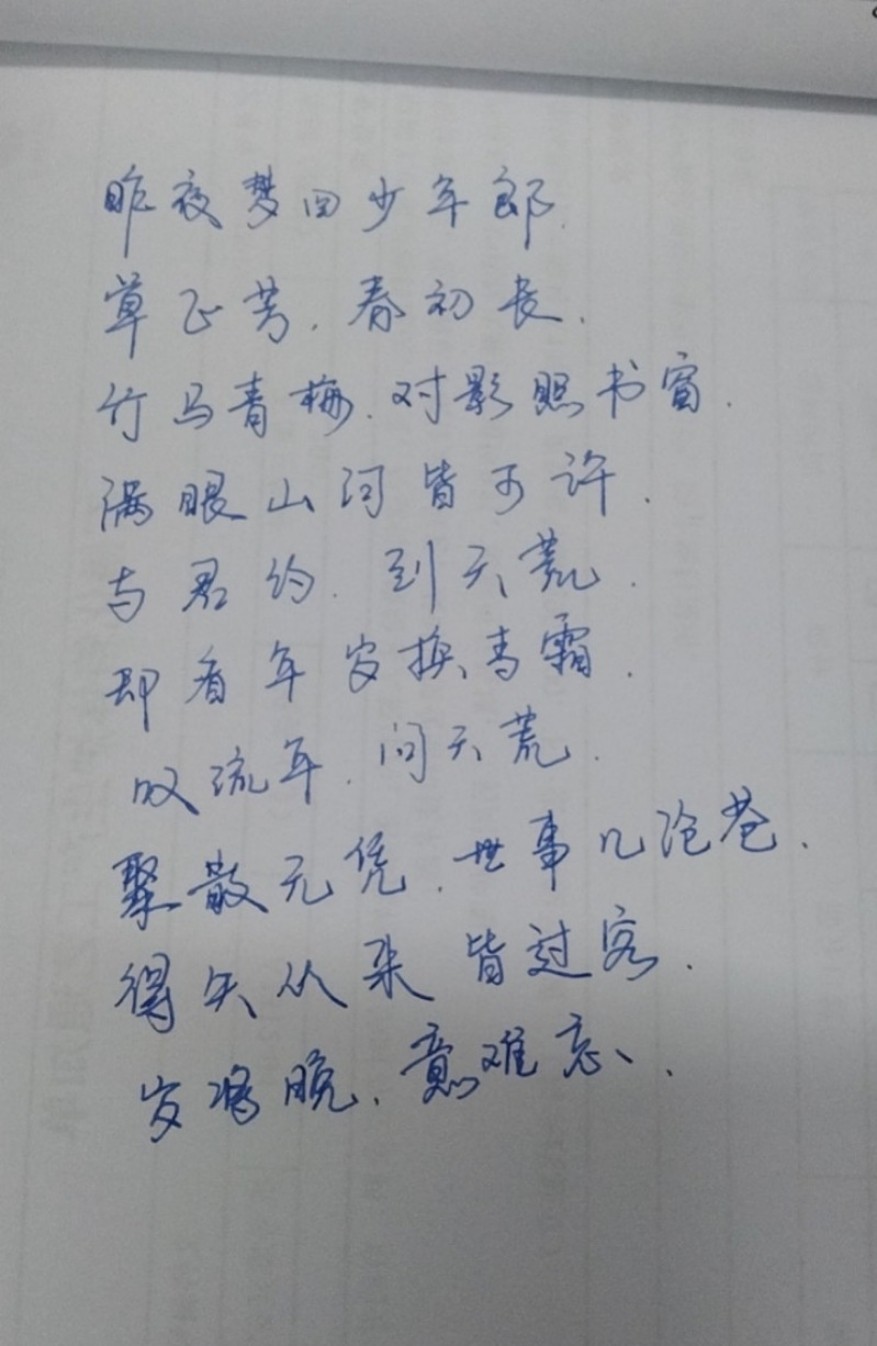 昨夜梦回少年郎.
草正芳.春初长.
竹马青梅.对影照书窗.
满眼山河皆可许.
与君约.到天荒.
却看年岁换青霜.
叹流年.问天荒.
聚散无凭.世事几沧苍.
得失从来皆过客.
岁将晚.意难忘.